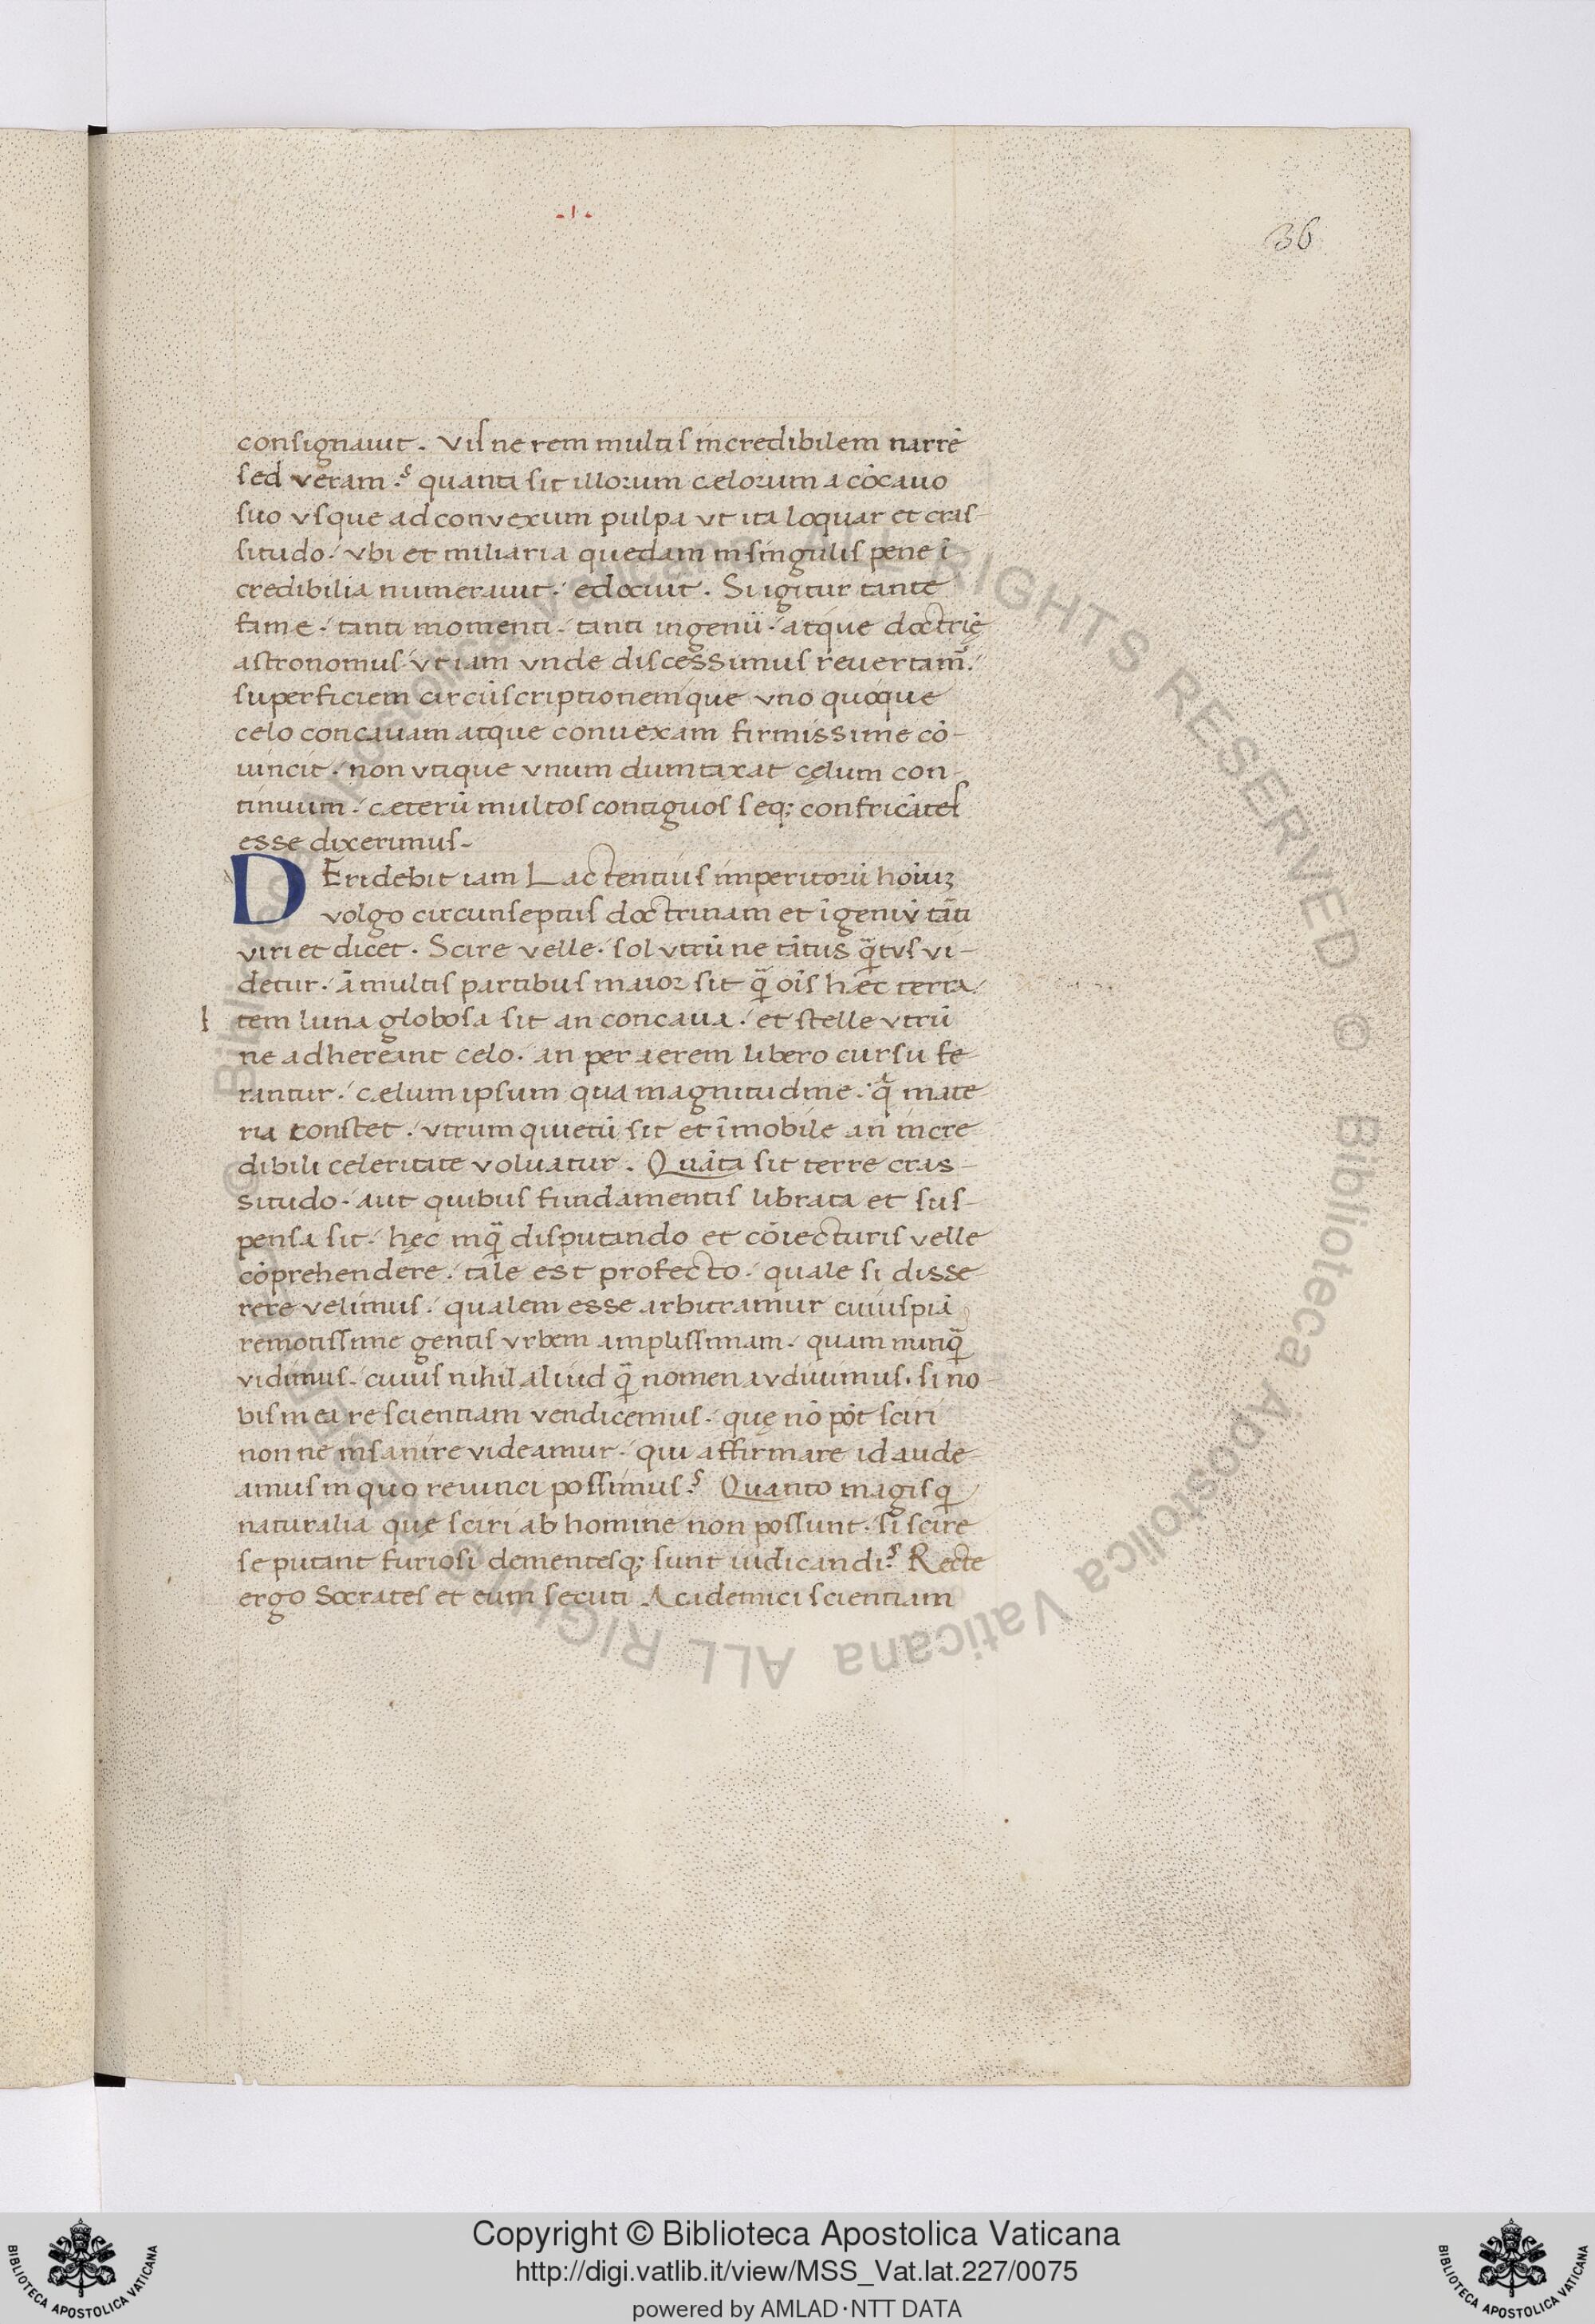 -1-
36
consignauit. Visne rem multis incredibilem narrē
sed veram? quanta sit illorum cælorum a cōcauo
suo vsque ad convexum pulpa vt ita loquar et cras-
situdo. vbi et miliaria quedam in singulis pene ī-
credibilia numerauit. edocuit. Si igitur tante
fame. tanti momenti. tanti ingenii. atque doctrīę
astronomus. vt iam vnde discessimus revertam̃.
superficiem circūscriptionemque vno quoque
celo concauam atque convexam firmissime cō-
uincit. non vtique vnum dumtaxat cęlum con-
tinuum. cæterū multos contiguos seq; confricātes
esse dixerimus.
DEridebit iam Lactentius imperitorū hoīuꝫ
volgo circunseptus doctrinam et īgeniū tāti
viri et dicet. Scire velle. sol vtrū ne tātus q̄tus vi-
detur. ā multis partibus maior sit q̄ oīs hæc terra.
l tem luna globosa sit an concaua. et stelle vtrū
ne adhereant celo. an per aerem libero cursu fe-
rantur. cælum ipsum qua magnitudine. q̄ mate-
ria constet. vtrum quietū sit et īmobile an incre-
dibili celeritate voluatur. Quāta sit terre cras-
situdo. aut quibus fundamentis librata et sus-
pensa sit. hęc inq̄ disputando et cōiecturis velle
cōprehendere. tale est profecto. quale si disse-
rere velimus. qualem esse arbitramur cuiuspiā
remotissime gentis vrbem amplissimam. quam nunq̄
vidimus. cuius nihil aliud q̄ nomen avdiuimus. si no-
bis in ea re scientiam vendicemus. quę nō pōt sciri
non ne insanire videamur. qui affirmare id aude-
amus in quo reuinci possimus? Quanto magis q̄
naturalia que sciri ab homine non possunt. si scire
se putant furiosi dementesq; sunt iudicandi? Recte
ergo Socrates et eum secuti Academici scientiam
Copyright © Biblioteca Apostolica Vaticana
http://digi.vatlib.it/view/MSS_Vat.lat.227/0075
powered by AMLAD·NTT DATA
BIBLIOTECA APOSTOLICA VATICANA
BIBLIOTECA APOSTOLICA VATICANA
© Biblioteca Apostolica Vaticana ALL RIGHTS RESERVED © Biblioteca Apostolica Vaticana ALL RIGHTS RESERVED